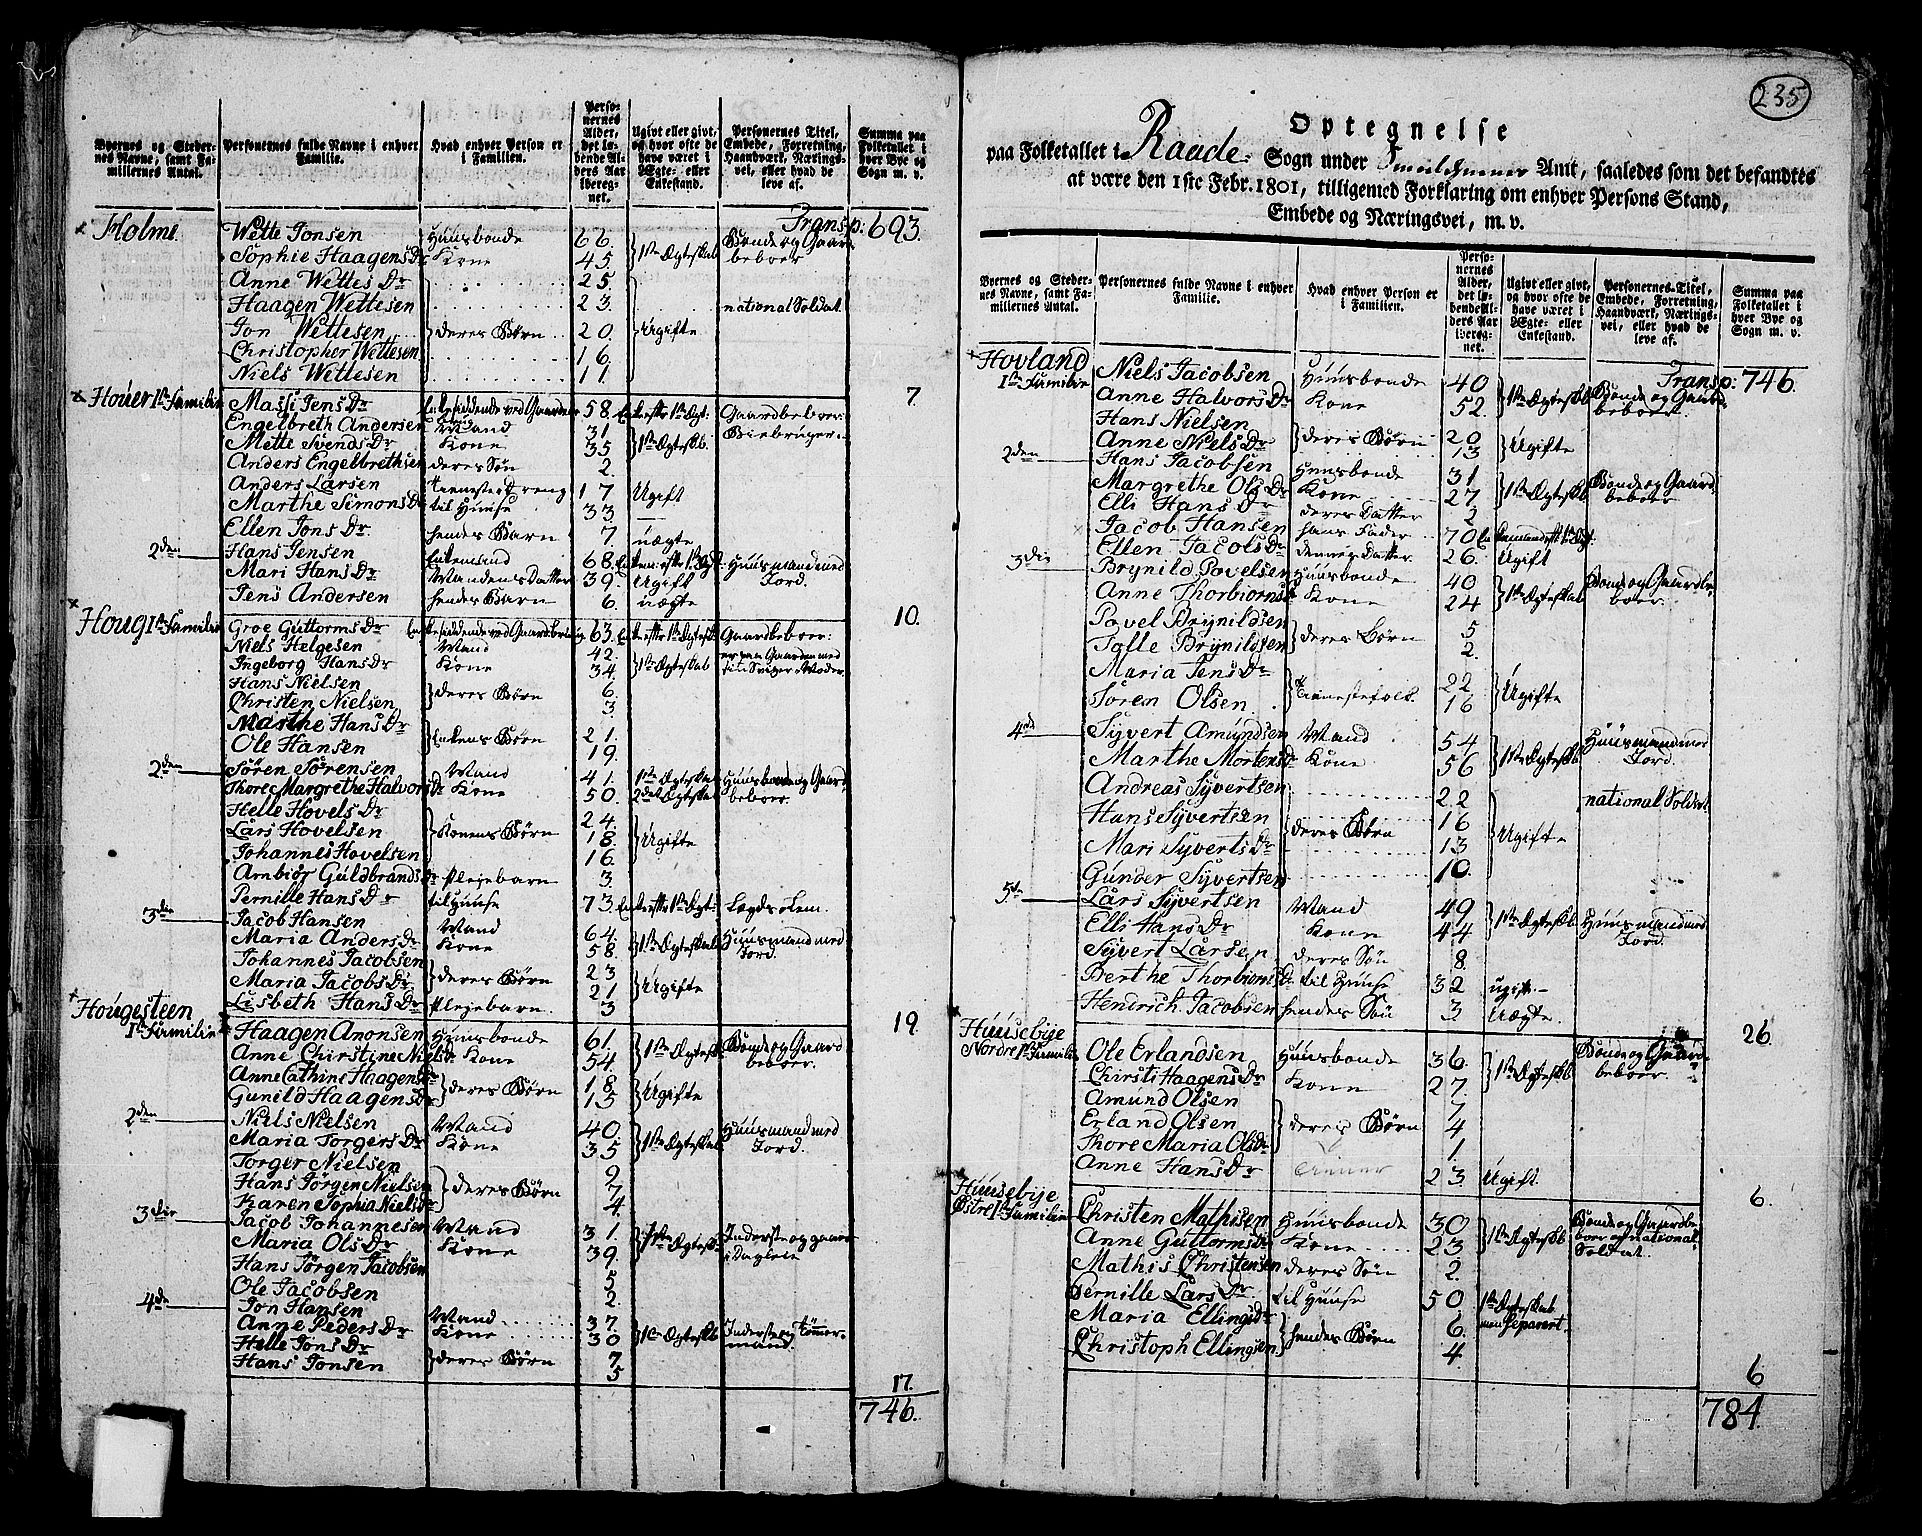 Byernes og Stedernes Navne, samt Familiernes Antal.
Personernes fulde Navne i enhver Familie.
Hvad enhver Person er i Familien.
Personernes Alder, det løbende Alders Aar iberegnet.
Ugivt eller givt, og hvor ofte de have været i Ægte- eller Enkestand.
Personernes Titel, Embede, Forretning, Haandværk, Næringsvei, eller hvad de leve af.
Summa paa Folketallet i hver Bye og Sogn m. v.
Transp: 693.
Holme Wette Jonsen Huusbonde 66. } 1ste Ægteskab Bonde og Gaardbeboer
Sophie Haagens Dr Kone 45
Anne Wettes Dr 25.
Haagen Wettesen 23. national Soldat.
Jon Wettesen } deres Børn 20. } Ugifte
Christopher Wettesen 16.
Niels Wettesen 11.
7
Houer 1ste Familie Massi Jens Dr Enkesiddende ved Gaarden 58. Enke efter 1ste Ægt: Gaardbeboer:
Engelbreth Andersen Mand 31 } 1ste Ægteskb.
Mette Svends Dr Kone 35
Anders Engelbrethsen deres Søn 2
Anders Larsen tieneste Dreng 17 Ugift
Marthe Simons Dr til Huuse 33 —
Ellen Jons Dr hendes Barn 7. uægte
2den Hans Jensen Enkemand 68. Huusmand med Jord.
Mari Hans Dr Mandens Datter 39. Ugift
Jens Andersen hendes Barn 6. uægte
10.
Houg 1ste Familie Groe Guttorms Dr 63. Gaardbeboer:
Niels Helgesen Mand 42. } 1ste Ægteskab er paa Gaarden med sin Sviger Moder
Ingeborg Hans Dr Kone 34
Hans Nielsen } deres Børn 6.
Christen Nielsen 3.
Marthe Hans Dr } Enkens Børn 21.
Ole Hansen 19.
2den Sören Sörensen Mand 41. 1ste Ægteskab Huusbonde og Gaardbeboer.
Thore Margrethe Halvors Dr Kone 50. 2det Ægteskab
Helle Hovels Dr 24.
Lars Hovelsen } Konens Børn 18. } Ugifte
Johannes Hovelsen 16.
Ambiør Guldbrands Dr Pleiebarn 3.
Pernille Hans Dr til Huuse 73. Enke efter 1ste Ægt: Lægds Lem.
3die Jacob Hansen Mand 64. } 1ste Ægteskab Huusmand med Jord.
Maria Anders Dr Kone 58.
Johannes Jacobsen } deres Børn 23 } Ugifte
Maria Jacobs Dr 21
Lisbeth Hans Dr Pleiebarn. 3
19.
Hougesteen 1ste Familie Haagen Amonsen Huusbonde 61. } 1ste Ægteskb. Bonde og Gaardbeboer.
Anne Chirstine Niels Dr Kone 54.
Anne Cathine Haagens Dr } deres Børn 18 } Ugifte
Gunild Haagens Dr 15
2den Niels Nielsen Mand 40 } 1ste Ægteskab Huusmand med Jord.
Maria Torgers Dr Kone 35
Torger Nielsen 9
Hans Jörgen Nielsen } deres Børn 7
Karen Sophia Niels Dr 4.
3die Jacob Johannesen Mand 31. } 1ste Ægteskb
Maria Ols Dr Kone 39.
Hans Jörgen Jacobsen 5
Ole Jacobsen 2.
4de Jon Hansen Mand 37 } 1ste Ægteskb Inderste og tömmermand.
Anne Peders Dr Kone 30
Helle Jons Dr } deres Børn 7
Hans Jonsen 5
17.
746.
235
Optegnelse
paa Folketallet i Raade Sogn under Smaalehnenes Amt, saaledes som det befandtes
at være den 1ste Febr. 1801, tilligemed Forklaring om enhver Persons Stand,
Embede og Næringsvei, m. v.
Byernes og Stedernes Navne, samt Familiernes Antal.
Personernes fulde Navne i enhver Familie.
Hvad enhver Person er i Familien.
Personernes Alder, det løbende Alders Aar iberegnet.
Ugivt eller givt, og hvor ofte de have været i Ægte- eller Enkestand.
Personernes Titel, Embede, Forretning, Haandværk, Næringsvei, eller hvad de leve af.
Summa paa Folketallet i hver Bye og Sogn m. v.
Transp: 746.
Hovland 1ste Familie Niels Jacobsen Huusbonde 40 } 1ste Ægteskb Bonde og Gaardbeboer.
Anne Halvors Dr Kone 52.
Hans Nielsen } deres Børn 20 } Ugifte
Anne Niels Dr 13
2den Hans Jacobsen Huusbonde 31 } 1ste Ægteskb Bonde og Gaardbeboer
Margrethe Ols Dr Kone 27
Elli Hans Dr deres Datter 2
Jacob Hansen hans Fader 70
Ellen Jacobs Dr dennes Datter 26. Ugift
3die Brynild Povelsen Huusbonde 40 } 1ste Ægteskab Bonde og Gaardbeboer.
Anne Thorbiörns Dr Kone 24
Povel Brynildsen } deres Børn 5
Palle Brynildsen 2.
Maria Jens Dr } Tienestefolk. 22 } Ugifte
Sören Olsen 16
4de Syvert Amundsen Mand 54 } 1ste Ægteskb Huusmand med Jord.
Marthe Mortens Dr Kone 56
Andreas Syvertsen 22 national Soldat
Hans Syvertsen } deres Børn 16 } Ugifte
Mari Syverts Dr 13
Gunder Syvertsen 10.
5te Lars Syvertsen Mand 49 } 1ste Ægteskb Huusmand med Jord.
Elli Hans Dr Kone 44
Syvert Larsen deres Søn 8.
Berthe Thorbiörns Dr til Huuse 32 ugift
Hendrich Jacobsen hendes Søn 3 Uægte.
26.
Huusebye Nordre 1ste Familie Ole Erlandsen Huusbonde 36. } 1ste Ægteskb Bonde og Gaardbeboer.
Chirsti Haagens Dr Kone 27.
Amund Olsen 7
Erland Olsen } deres Børn 4
Thore Maria Ols Dr 1.
Anne Hans Dr tiener 23. Ugift.
6
Huusebye Østre 1ste Familie Christen Mathisen Huusbonde 30 } 1ste Ægteskb Bonde og Gaardbeboer og national Soldat.
Anne Guttorms Dr Kone 23
Mathis Christensen deres Søn 2.
Pernille Lars Dr til Huuse 50 1ste Ægteskab men Separert.
Maria Ellings Dr } hendes Børn 6.
Christoph Ellingsen 4.
6
784.